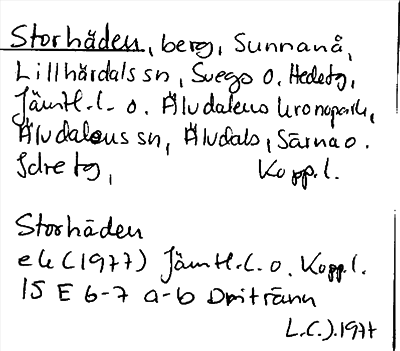 Storhäden, berg, Sunnanå,
Lillhärdals sn, Svegs o. Hedetg,
Jämtl. l. o. Älvdalens kronopark,
Älvdalens sn, Älvdals, Särna o.
Idre tg, Kopp. l.
Storhäden
ek (1977) Jämtl. l. o. Kopp. l.
15 E 6-7 a-b
L.C.J. 1977